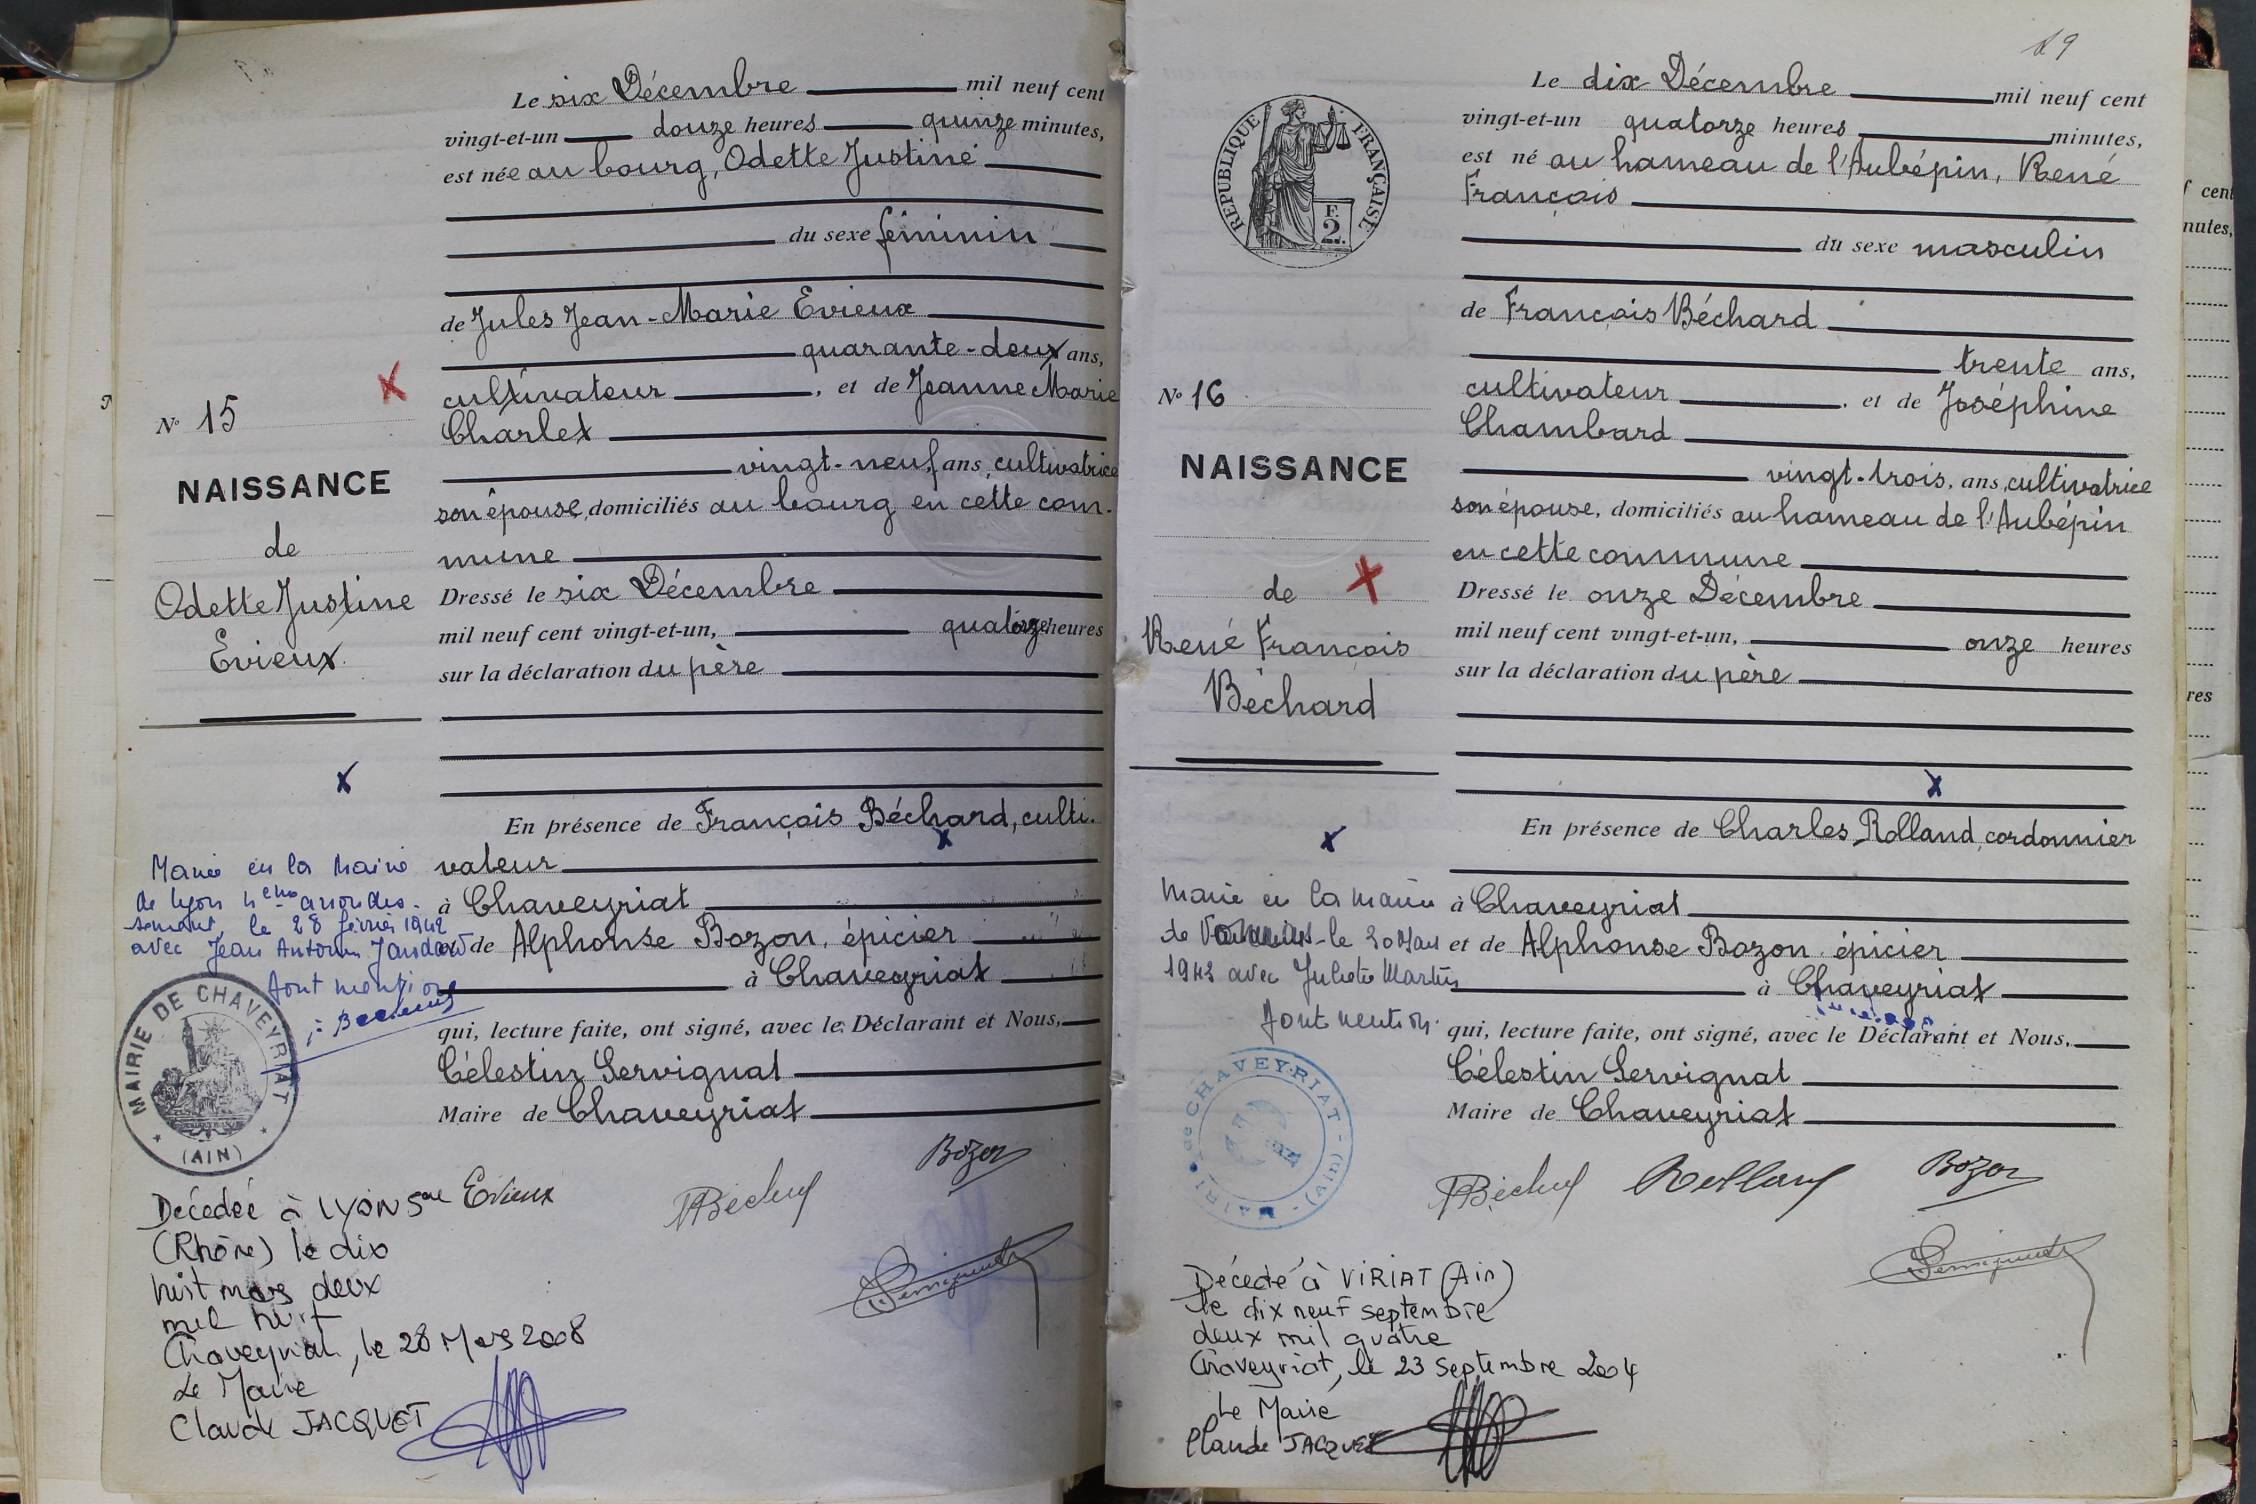 Le six Décembre mil neuf cent
vingt-et-un douze heures quinze minutes,
est née au bourg, Odette Justine
du sexe féminin
de Jules Jean-Marie Evieux
quarante-deux ans,
cultivateur, et de Jeanne Marie
Charlet
vingt-neuf ans, cultivatrice
son épouse, domiciliés au bourg en cette com-
mune
Dressé le six Décembre
mil neuf cent vingt-et-un, quatorze heures
sur la déclaration du père
En présence de François Béchard, culti-
vateur
à Chaveyriat
et de Alphonse Bozon, épicier
à Chaveyriat
qui, lecture faite, ont signé, avec le Déclarant et Nous,
Célestin Servignat
Maire de Chaveyriat
Evieux
Béchard
Bozon
Servignat
No 15
NAISSANCE
de
Odette Justine
Evieux
Marié en la Mairie
de Lyon 4eme arrondis-
sement, le 28 février 1942
avec Jean Antoine
dont mention
MAIRIE DE CHAVEYRIAT
(AIN)
Décédée à LYON 5me
(Rhône) le dix
huit mars deux
mil huit
Chaveyriat, le 28 Mars 2008
Le Maire
Claude JACQUET
19
Le dix Décembre mil neuf cent
vingt-et-un quatorze heures minutes,
est né au hameau de l'Aubépin, René
François
du sexe masculin
de François Béchard
trente ans,
cultivateur, et de Joséphine
Chambard
vingt-trois, ans, cultivatrice
son épouse, domiciliés au hameau de l'Aubépin
en cette commune
Dressé le onze Décembre
mil neuf cent vingt-et-un, onze heures
sur la déclaration du père
En présence de Charles Rolland, cordonnier
à Chaveyriat
et de Alphonse Bozon, épicier
à Chaveyriat
qui, lecture faite, ont signé, avec le Déclarant et Nous,
Célestin Servignat
Maire de Chaveyriat
Béchard
Rolland
Bozon
Servignat
REPUBLIQUE FRANÇAISE
F.
2.
No 16
NAISSANCE
de
René François
Béchard
Marié en la mairie
de le 30 Mars
avec Juliette Martin
dont mention
MAIRIE de CHAVEYRIAT (Ain)
Décédé à VIRIAT (Ain)
le dix neuf septembre
deux mil quatre
Chaveyriat, le 23 septembre 2004
Le Maire
Claude JACQUET
f cent
nutes,
res